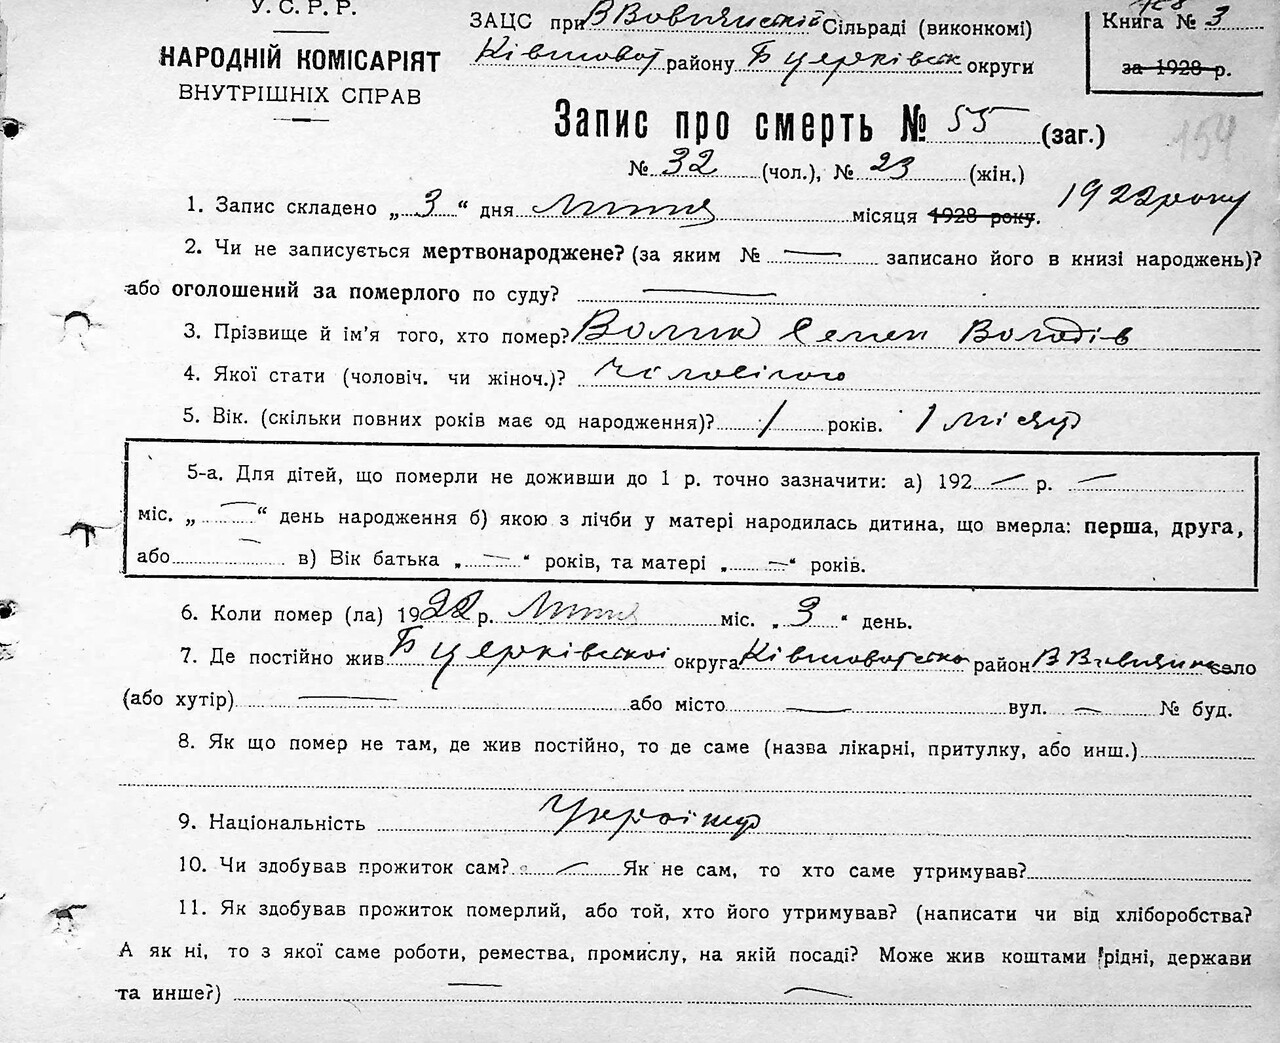 У. С. Р. Р.
НАРОДНІЙ КОМІСАРІЯТ
ВНУТРІШНІХ СПРАВ
ЗАЦС при Сільраді (виконкомі)
району Б Церківськ округи
Книга № 3
за 1928 р.
154
Запис про смерть № 55 (заг.)
№ 32 (чол.), № 23 (жін.)
1. Запис складено „ 3 “ дня місяця 1928 року. 1922 року
2. Чи не записується мертвонароджене? (за яким № — записано його в книзі народжень)?
або оголошений за померлого по суду? —
3. Прізвище й ім’я того, хто помер? Волик Семен
4. Якої стати (чоловіч. чи жіноч.)?
5. Вік. (скільки повних років має од народження)? 1 років. 1 місяц
5-а. Для дітей, що померли не доживши до 1 р. точно зазначити: а) 192 — р. —
міс. „ — “ день народження б) якою з лічби у матері народилась дитина, що вмерла: перша, друга,
або — в) Вік батька „ — “ років, та матері „ — “ років.
6. Коли помер (ла) 1922 р. міс. „ 3 “ день.
7. Де постійно жив Б Церківської округа район село
(або хутір) — або місто — вул. — № буд.
8. Як що помер не там, де жив постійно, то де саме (назва лікарні, притулку, або инш.)
9. Національність Українц
10. Чи здобував прожиток сам? — Як не сам, то хто саме утримував?
11. Як здобував прожиток померлий, або той, хто його утримував? (написати чи від хліборобства?
А як ні, то з якої саме роботи, ремества, промислу, на якій посаді? Може жив коштами рідні, держави
та инше?) — —